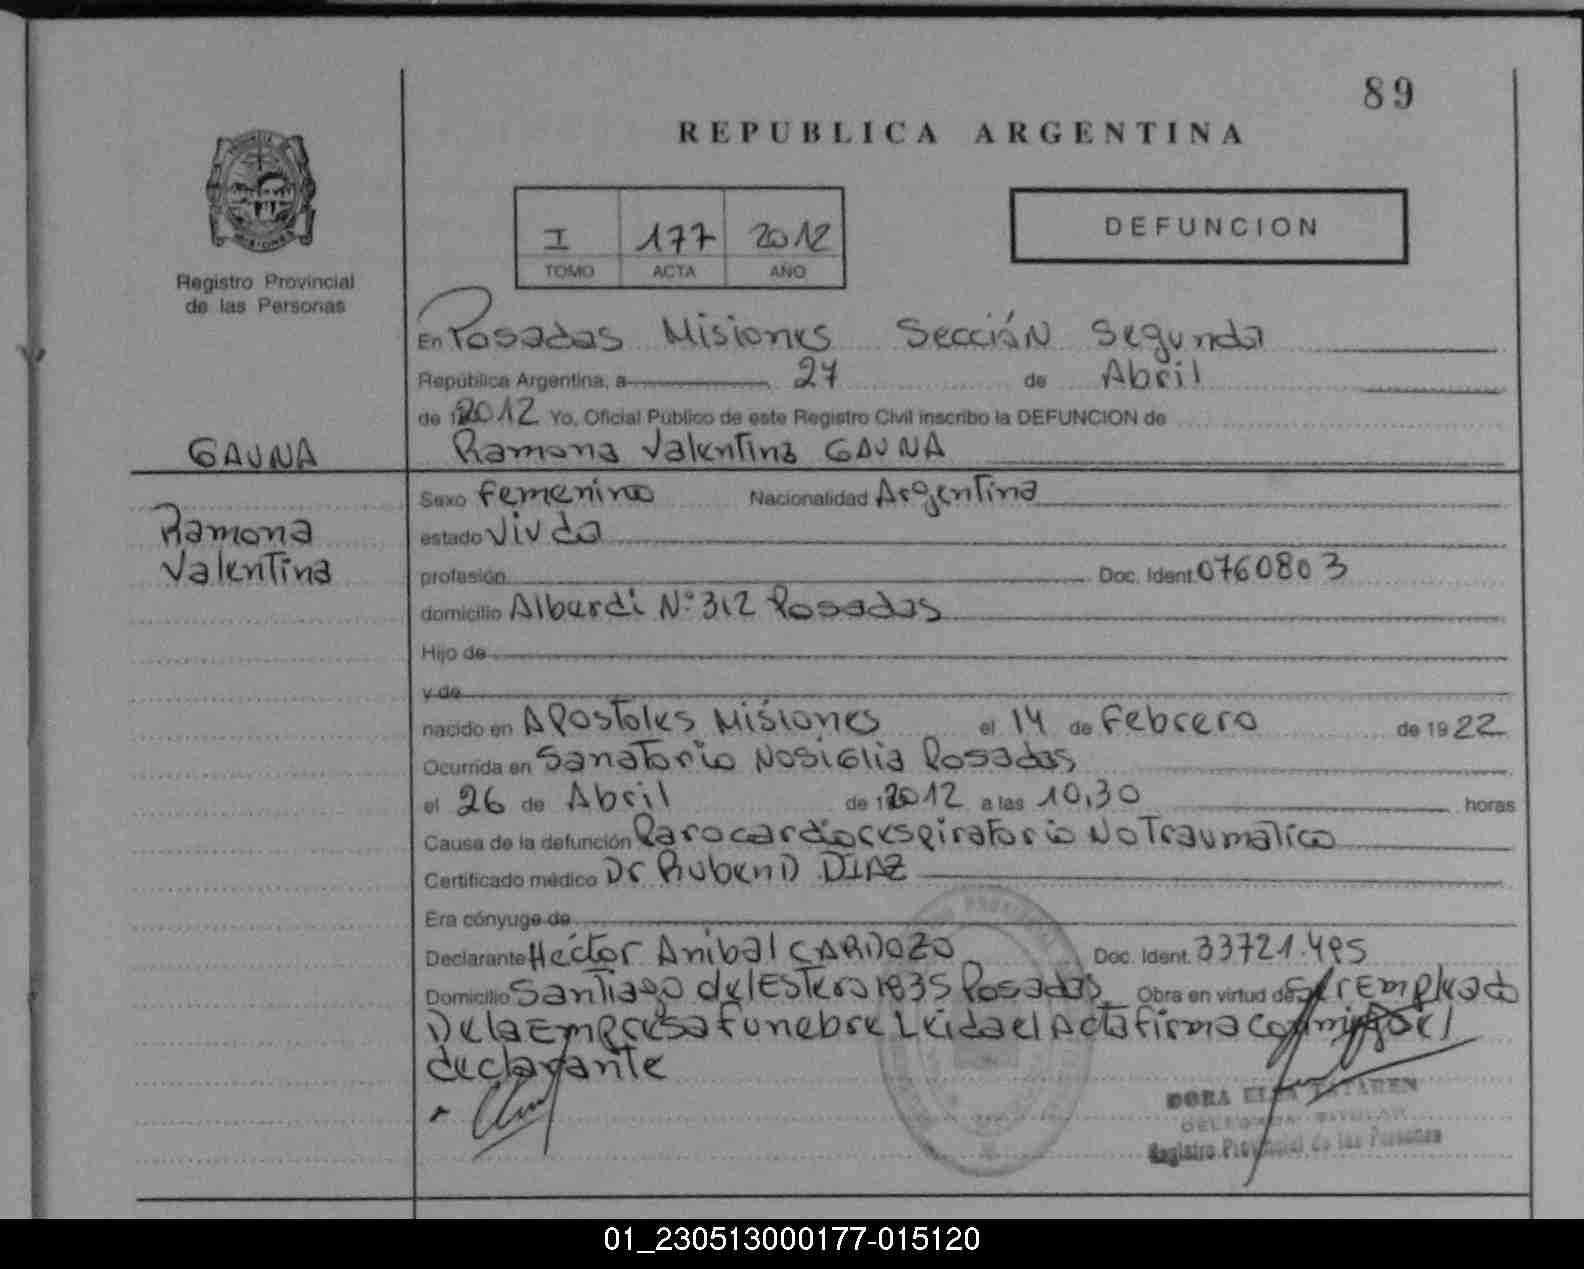 89
REPUBLICA ARGENTINA
I 177 2012
TOMO ACTA AÑO
DEFUNCION
Registro Provincial
de las Personas
En Posadas Misiones Sección Segunda
República Argentina, a 27 de Abril
de 2012 Yo, Oficial Público de este Registro Civil inscribo la DEFUNCION de
GAUNA
Ramona Valentina GAUNA
Ramona
Valentina
Sexo Femenino Nacionalidad Argentina
estado Viuda
profesión Doc. Ident. 0760803
domicilio Alburdi Nº 312 Posadas
Hijo de
y de
nacido en Apostoles Misiones el 14 de Febrero de 1922
Ocurrida en Sanatorio Nosiglia Posadas
el 26 de Abril de 2012 a las 10,30 horas
Causa de la defunción Paro cardiorespiratorio No Traumatico
Certificado médico Dr Ruben D DIAZ
Era cónyuge de
Declarante Hector Anibal CARDOZO Doc. Ident. 33721.495
Domicilio Santiago del Estero 1835 Posadas Obra en virtud de Ser Empleado
De la Empresa Funebre Leida el Acta firma conmigo el
declarante
DORA ELSA
DELEGADA TITULAR
Registro Provincial de las Personas
01_230513000177-015120